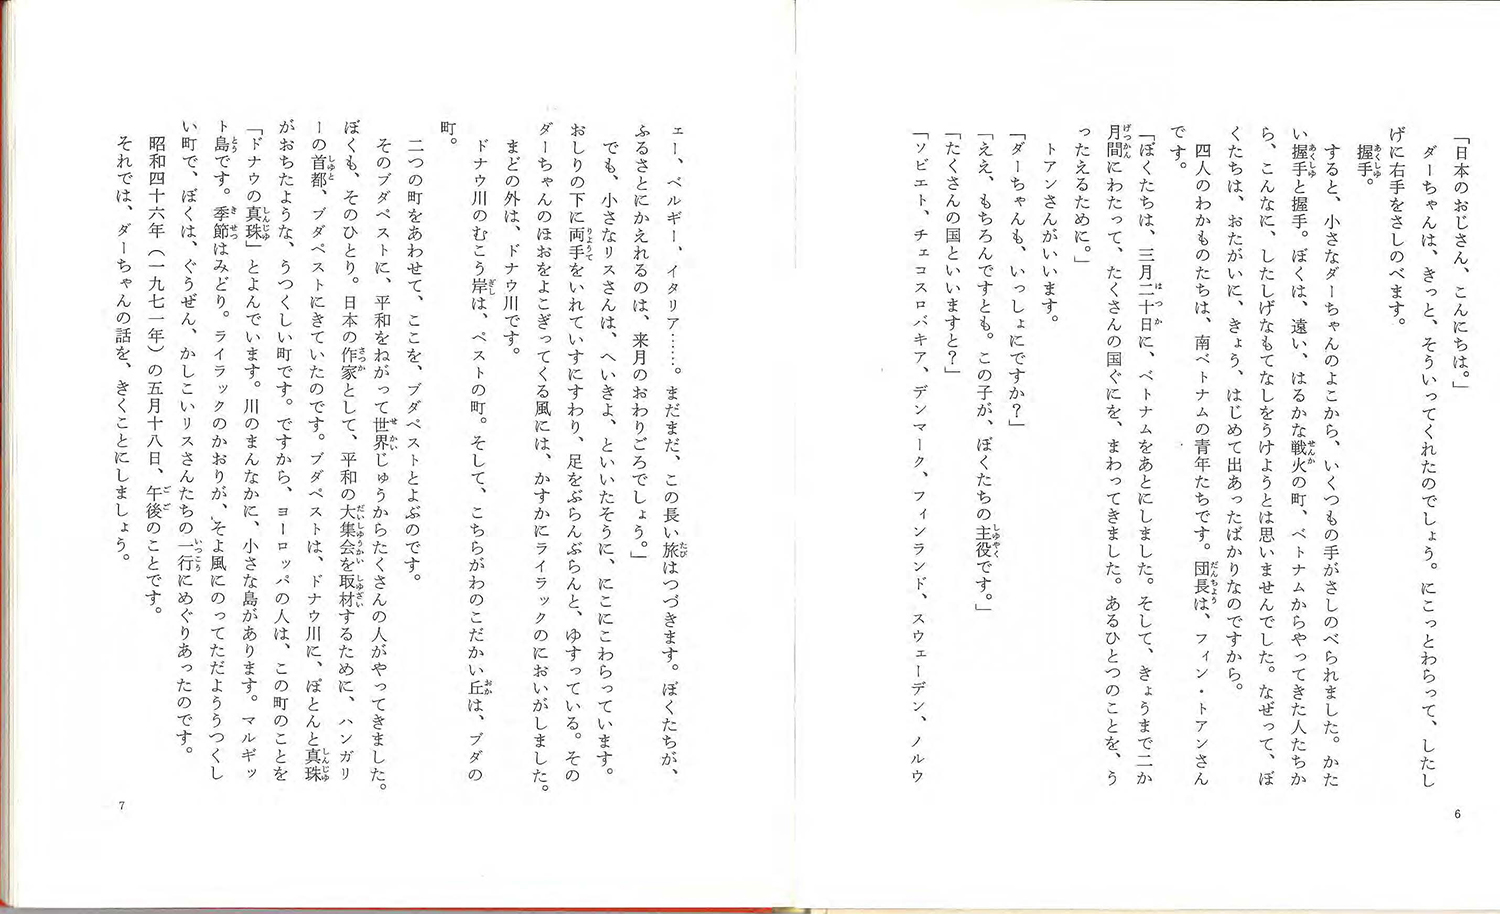 「日本のおじさん、こんにちは。」
ダーちゃんは、きっと、そういってくれたのでしょう。にこっとわらって、したし
げに右手をさしのべます。
握手。
すると、小さなダーちゃんのよこから、いくつもの手がさしのべられました。かた
い握手と握手。ぼくは、遠い、はるかな戦火の町、ベトナムからやってきた人たちか
ら、こんなに、したしげなもてなしをうけようとは思いませんでした。なぜって、ぼ
くたちは、おたがいに、きょう、はじめて出あったばかりなのですから。
四人のわかものたちは、南ベトナムの青年たちです。団長は、フィン・トアンさん
です。
「ぼくたちは、三月二十日に、ベトナムをあとにしました。そして、きょうまで二か
月間にわたって、たくさんの国ぐにを、まわってきました。あるひとつのことを、う
ったえるために。」
トアンさんがいいます。
「ダーちゃんも、いっしょにですか？」
「ええ、もちろんですとも。この子が、ぼくたちの主役です。」
「たくさんの国といいますと？」
「ソビエト、チェコスロバキア、デンマーク、フィンランド、スウェーデン、ノルウ
6
ェー、ベルギー、イタリア……。まだまだ、この長い旅はつづきます。ぼくたちが、
ふるさとにかえれるのは、来月のおわりごろでしょう。」
でも、小さなリスさんは、へいきよ、といいたそうに、にこにこわらっています。
おしりの下に両手をいれていすにすわり、足をぶらんぶらんと、ゆすっている。その
ダーちゃんのほおをよこぎってくる風には、かすかにライラックのにおいがしました。
まどの外は、ドナウ川です。
ドナウ川のむこう岸は、ペストの町。そして、こちらがわのこだかい丘は、ブダの
町。
二つの町をあわせて、ここを、ブダペストとよぶのです。
そのブダペストに、平和をねがって世界じゅうからたくさんの人がやってきました。
ぼくも、そのひとり。日本の作家として、平和の大集会を取材するために、ハンガリ
ーの首都、ブダペストにきていたのです。ブダペストは、ドナウ川に、ぽとんと真珠
がおちたような、うつくしい町です。ですから、ヨーロッパの人は、この町のことを
「ドナウの真珠」とよんでいます。川のまんなかに、小さな島があります。マルギッ
ト島です。季節はみどり。ライラックのかおりが、そよ風にのってただよううつくし
い町で、ぼくは、ぐうぜん、かしこいリスさんたちの一行にめぐりあったのです。
昭和四十六年（一九七一年）の五月十八日、午後のことです。
それでは、ダーちゃんの話を、きくことにしましょう。
7